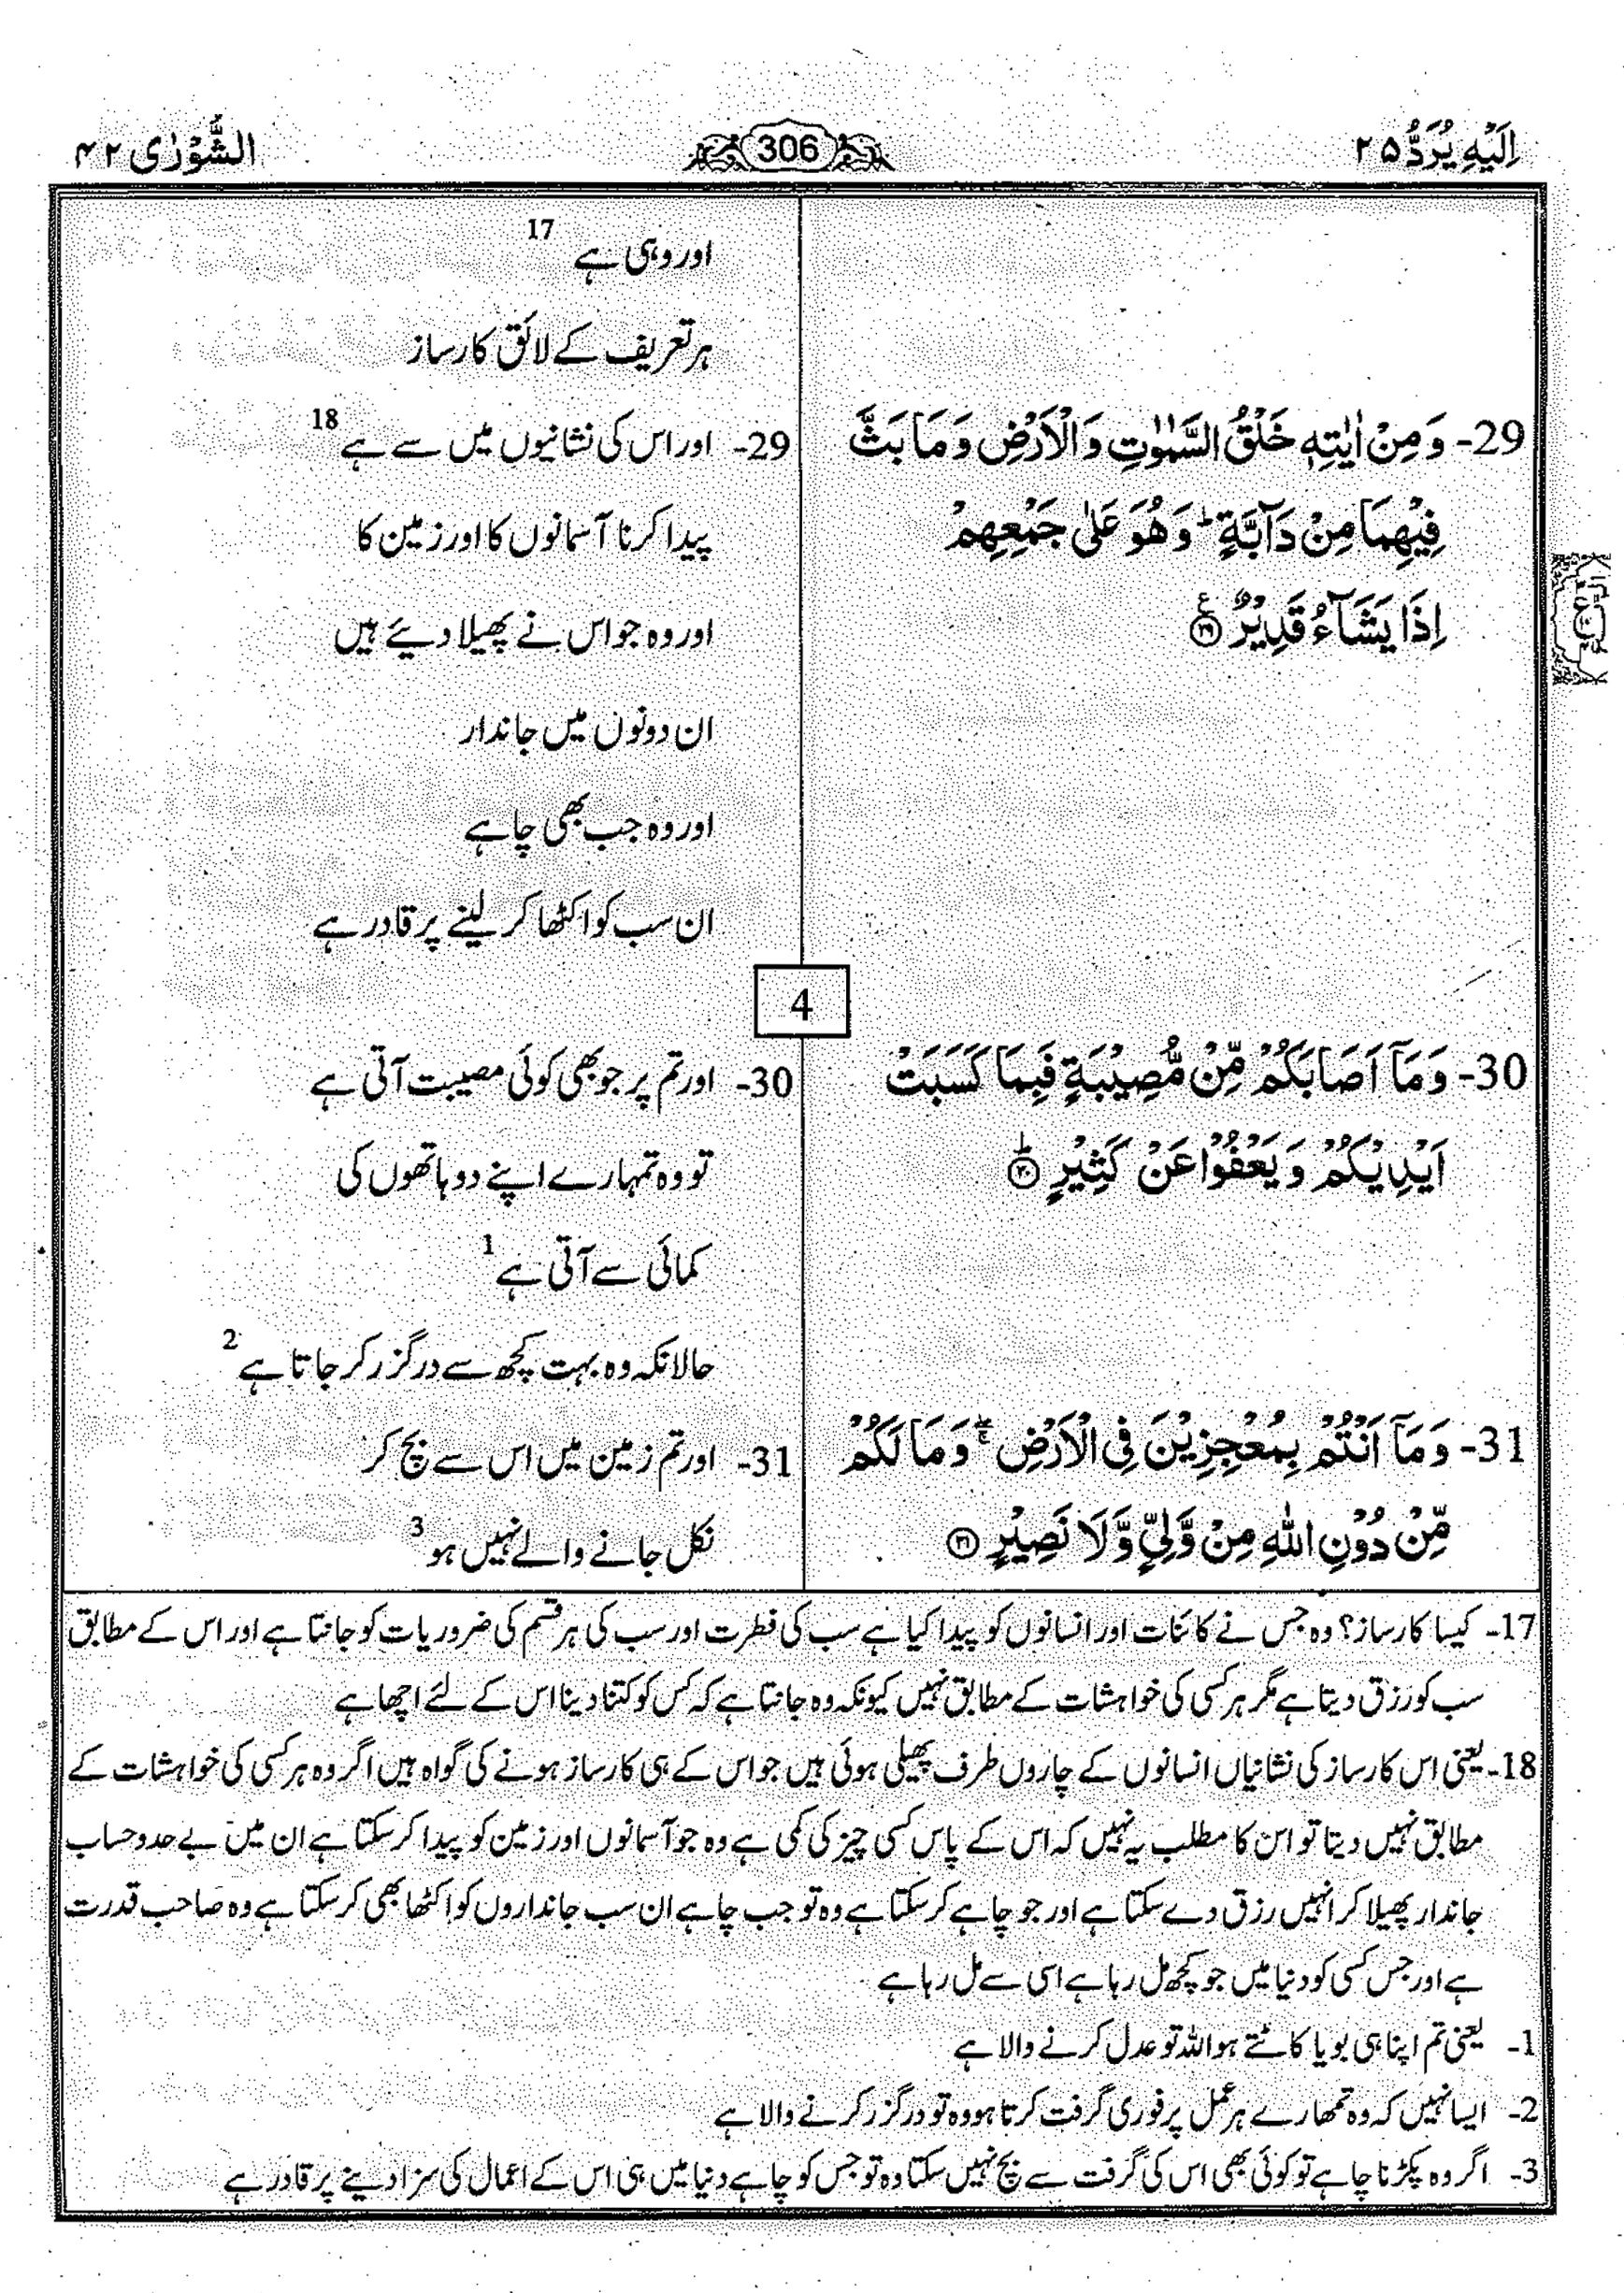 اِلَیْهِ یُرَدُّ ۲۵
306
الشُّوْرٰی ۴۲
اور وہی ہے 17
ہر تعریف کے لائق کارساز
29- وَ مِنْ اٰیٰتِهٖ خَلْقُ السَّمٰوٰتِ وَ الْاَرْضِ وَ مَا بَثَّ
فِیْهِمَا مِنْ دَآبَّةٍ ؕ وَ هُوَ عَلٰی جَمْعِهِمْ
اِذَا یَشَآءُ قَدِیْرٌ ۟ع ۲۹
29- اور اس کی نشانیوں میں سے ہے 18
پیدا کرنا آسمانوں کا اور زمین کا
اور وہ جو اس نے پھیلا دیئے ہیں
ان دونوں میں جاندار
اور وہ جب بھی چاہے
ان سب کو اکٹھا کر لینے پر قادر ہے
4
30- وَ مَاۤ اَصَابَكُمْ مِّنْ مُّصِیْبَةٍ فَبِمَا كَسَبَتْ
اَیْدِیْكُمْ وَ یَعْفُوْا عَنْ كَثِیْرٍ ؕ ۳۰
30- اور تم پر جو بھی کوئی مصیبت آتی ہے
تو وہ تمہارے اپنے دو ہاتھوں کی
کمائی سے آتی ہے 1
حالانکہ وہ بہت کچھ سے درگزر کر جاتا ہے 2
31- وَ مَاۤ اَنْتُمْ بِمُعْجِزِیْنَ فِی الْاَرْضِ ۖۚ وَ مَا لَكُمْ
مِّنْ دُوْنِ اللّٰهِ مِنْ وَّلِیٍّ وَّ لَا نَصِیْرٍ ۳۱
31- اور تم زمین میں اس سے بچ کر
نکل جانے والے نہیں ہو 3
17- کیسا کارساز؟ وہ جس نے کائنات اور انسانوں کو پیدا کیا ہے سب کی فطرت اور سب کی ہر قسم کی ضروریات کو جانتا ہے اور اس کے مطابق
سب کو رزق دیتا ہے مگر ہر کسی کی خواہشات کے مطابق نہیں کیونکہ وہ جانتا ہے کہ کس کو کتنا دینا اس کے لئے اچھا ہے
18- یعنی اس کارساز کی نشانیاں انسانوں کے چاروں طرف پھیلی ہوئی ہیں جو اس کے ہی کارساز ہونے کی گواہ ہیں اگر وہ ہر کسی کی خواہشات کے
مطابق نہیں دیتا تو ان کا مطلب یہ نہیں کہ اس کے پاس کسی چیز کی کمی ہے وہ جو آسمانوں اور زمین کو پیدا کر سکتا ہے ان میں بے حد و حساب
جاندار پھیلا کر انہیں رزق دے سکتا ہے اور جو چاہے کر سکتا ہے وہ تو جب چاہے ان سب جانداروں کو اکٹھا بھی کر سکتا ہے وہ صاحب قدرت
ہے اور جس کسی کو دنیا میں جو کچھ مل رہا ہے اسی سے مل رہا ہے
1- یعنی تم اپنا ہی بویا کاٹتے ہو اللہ تو عدل کرنے والا ہے
2- ایسا نہیں کہ وہ تمھارے ہر عمل پر فوری گرفت کرتا ہو وہ تو درگزر کرنے والا ہے
3- اگر وہ پکڑنا چاہے تو کوئی بھی اس کی گرفت سے بچ نہیں سکتا وہ تو جس کو چاہے دنیا میں ہی اس کے اعمال کی سزا دینے پر قادر ہے